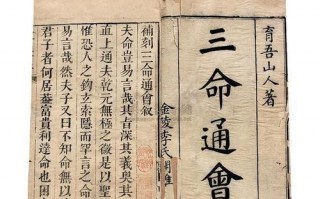 育吾山人著
三命通會
金陵李氏
補刻三命通會敘
夫命豈易言哉其旨深其義奧其
直上通夫乾元無極之微是以聖
惟恐人之鉤玄索隱而罕言之命
易言哉然夫子又曰不知命無以
君子者何居葢富貴利達命也困